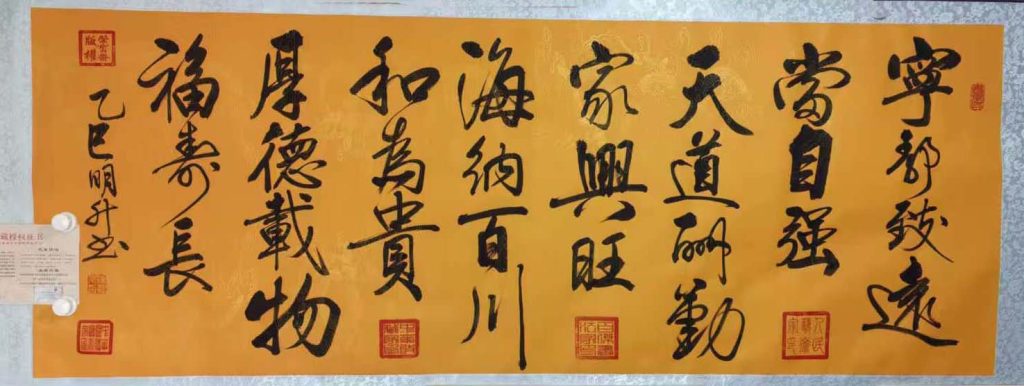 寧靜致遠
當自强
天道酬勤
家興旺
海納百川
和為貴
厚德載物
福壽長
乙巳明升书